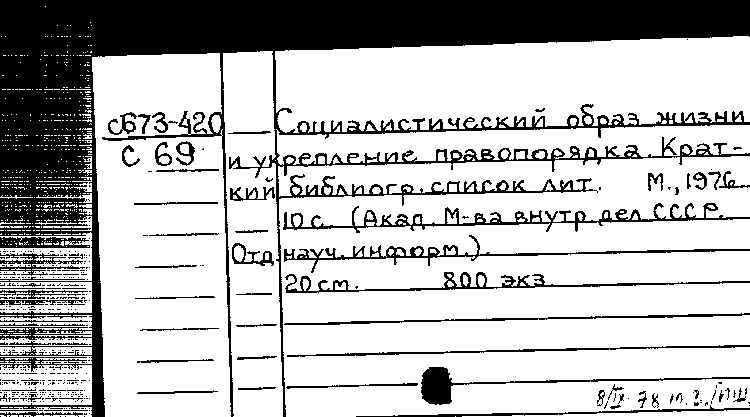 сб73-420
С 69
Социалистический образ жизни
и укрепление правопорядка. Крат-
кий библиогр. список лит. М., 1976
10 с. (Акад. М-ва внутр. дел СССР.
Отд. науч. информ.).
20 см. 800 экз.
8/IX 78